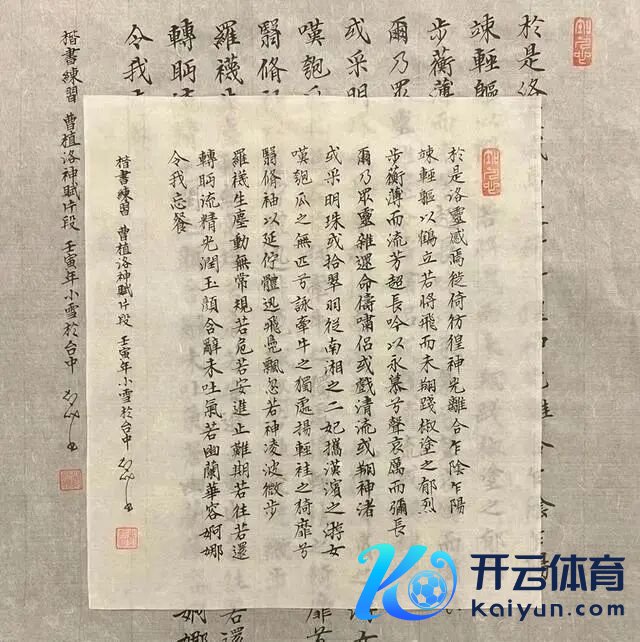 於是洛
竦輕軀
步蘅薄
爾乃眾
或采明
嘆匏瓜
翳脩
羅襪生
轉眄
令我
楷書練習 曹植洛神賦片段 壬寅年小雪於台中
於是洛靈感焉徙倚彷徨神光離合乍陰乍陽
竦輕軀以鶴立若將飛而未翔踐椒塗之郁烈
步蘅薄而流芳超長吟以永慕兮聲哀厲而彌長
爾乃眾靈雜遝命儔嘯侶或戲清流或翔神渚
或采明珠或拾翠羽從南湘之二妃攜漢濱之游女
嘆匏瓜之無匹兮詠牽牛之獨處揚輕袿之猗靡兮
翳脩袖以延佇體迅飛鳧飄忽若神凌波微步
羅襪生塵動無常規若危若安進止難期若往若還
轉眄流精光潤玉顏含辭未吐氣若幽蘭華容婀娜
令我忘餐
楷書練習 曹植洛神賦片段 壬寅年小雪於台中
开云体育
kaiyun.com